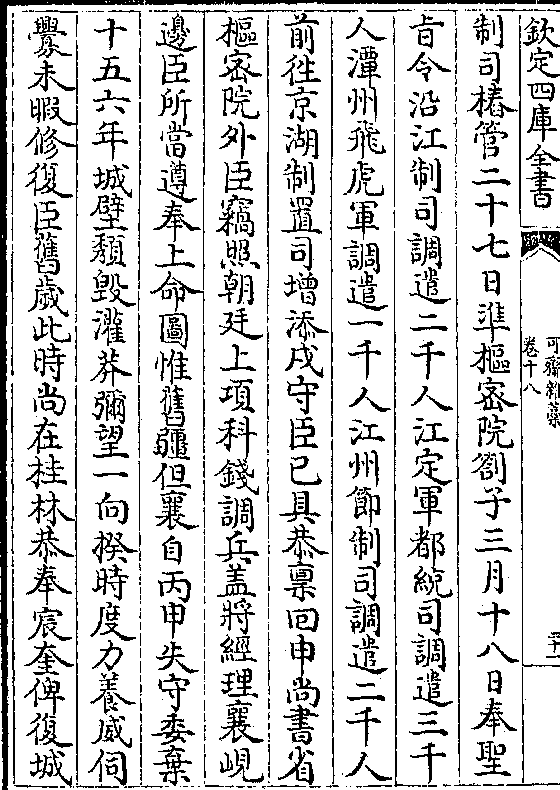 欽定四庫全書
可齋雜藁
卷十八
三十一
制司樁管二十七日準樞密院劄子三月十八日奉聖
旨令沿江制司調遣二千人江定軍都統司調遣三千
人潭州飛虎軍調遣一千人江州節制司調遣二千人
前徃京湖制置司增添戍守臣已具恭禀回申尚書省
樞密院外臣竊照朝廷上項科錢調兵盖將經理襄峴
邊臣所當遵奉上命圖惟舊疆但襄自丙申失守委棄
十五六年城壁頽毁灌莽彌望一向揆時度力養威伺
釁未暇修復臣舊歲此時尚在桂林恭奉宸奎俾復城